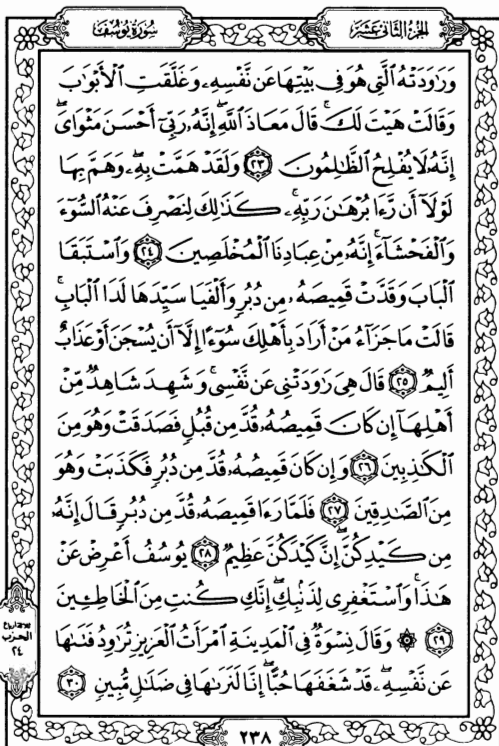 سُورَةُ يُوسُفَ
الجُزءُ الثَّانِي عَشَرَ
وَرَٰوَدَتْهُ ٱلَّتِى هُوَ فِى بَيْتِهَا عَن نَّفْسِهِۦ وَغَلَّقَتِ ٱلْأَبْوَٰبَ
وَقَالَتْ هَيْتَ لَكَ ۚ قَالَ مَعَاذَ ٱللَّهِ ۖ إِنَّهُۥ رَبِّىٓ أَحْسَنَ مَثْوَاىَ ۖ
إِنَّهُۥ لَا يُفْلِحُ ٱلظَّٰلِمُونَ ٢٣ وَلَقَدْ هَمَّتْ بِهِۦ ۖ وَهَمَّ بِهَا
لَوْلَآ أَن رَّءَا بُرْهَٰنَ رَبِّهِۦ ۚ كَذَٰلِكَ لِنَصْرِفَ عَنْهُ ٱلسُّوٓءَ
وَٱلْفَحْشَآءَ ۚ إِنَّهُۥ مِنْ عِبَادِنَا ٱلْمُخْلَصِينَ ٢٤ وَٱسْتَبَقَا
ٱلْبَابَ وَقَدَّتْ قَمِيصَهُۥ مِن دُبُرٍ وَأَلْفَيَا سَيِّدَهَا لَدَا ٱلْبَابِ ۚ
قَالَتْ مَا جَزَآءُ مَنْ أَرَادَ بِأَهْلِكَ سُوٓءًا إِلَّآ أَن يُسْجَنَ أَوْ عَذَابٌ
أَلِيمٌ ٢٥ قَالَ هِىَ رَٰوَدَتْنِى عَن نَّفْسِى ۚ وَشَهِدَ شَاهِدٌ مِّنْ
أَهْلِهَآ إِن كَانَ قَمِيصُهُۥ قُدَّ مِن قُبُلٍ فَصَدَقَتْ وَهُوَ مِنَ
ٱلْكَٰذِبِينَ ٢٦ وَإِن كَانَ قَمِيصُهُۥ قُدَّ مِن دُبُرٍ فَكَذَبَتْ وَهُوَ
مِنَ ٱلصَّٰدِقِينَ ٢٧ فَلَمَّا رَءَا قَمِيصَهُۥ قُدَّ مِن دُبُرٍ قَالَ إِنَّهُۥ
مِن كَيْدِكُنَّ ۖ إِنَّ كَيْدَكُنَّ عَظِيمٌ ٢٨ يُوسُفُ أَعْرِضْ عَنْ
هَٰذَا ۚ وَٱسْتَغْفِرِى لِذَنۢبِكِ ۖ إِنَّكِ كُنتِ مِنَ ٱلْخَاطِـِٔينَ
٢٩ ۞ وَقَالَ نِسْوَةٌ فِى ٱلْمَدِينَةِ ٱمْرَأَتُ ٱلْعَزِيزِ تُرَٰوِدُ فَتَىٰهَا
عَن نَّفْسِهِۦ ۖ قَدْ شَغَفَهَا حُبًّا ۖ إِنَّا لَنَرَىٰهَا فِى ضَلَٰلٍ مُّبِينٍ ٣٠
الحزب
٢٤
٢٣٨